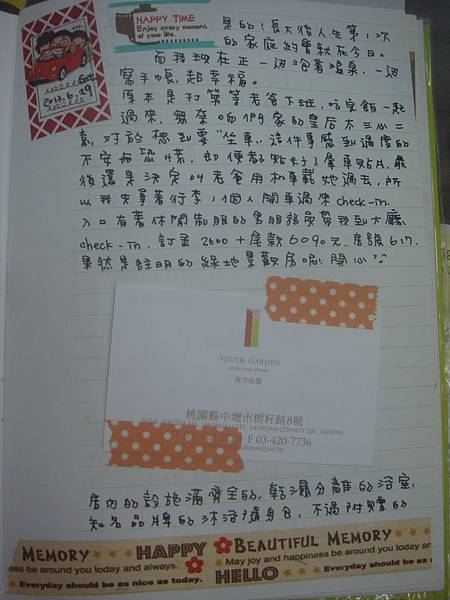 HAPPY TIME
Enjoy every moments
of your life.
2013.6.29
是的!長大後人生第1次
的家庭約會就在今日。
而我現在正一邊泡著溫泉,一邊
寫手帳,超幸福。
原本是打算等老爸下班,吃享飯一起
過來,無奈咱們家的皇后不三心二
意,對於想到要"坐車"這件事感到過度的
不安與恐慌,即便者點卡了暈車貼片,最
後還是決定叫老爸用機車載她過去,所
以我夫拿著行李,1個人開車過來check-in.
入口有著休閒制服的男服務員帶我到大廳
check-in,訂金2600+尾款6090元,房號617.
果然是註明的綠地景觀房呢!開心
SOUTH GARDEN
HOTELS AND RESORTS
南方莊園
桃園縣中壢市樹籽路8號
TAOYUAN COUNTY 320, TAIWAN
F 03-420-7736
房內的設施滿齊全的,乾濕分離的浴室,
知名品牌的沐浴隨身包,不過附贈的
MEMORY HAPPY BEAUTIFUL MEMORY
be around you today and always. May joy and happiness be around you today an
Everyday should be as nice as today. HELLO Everyday should be as